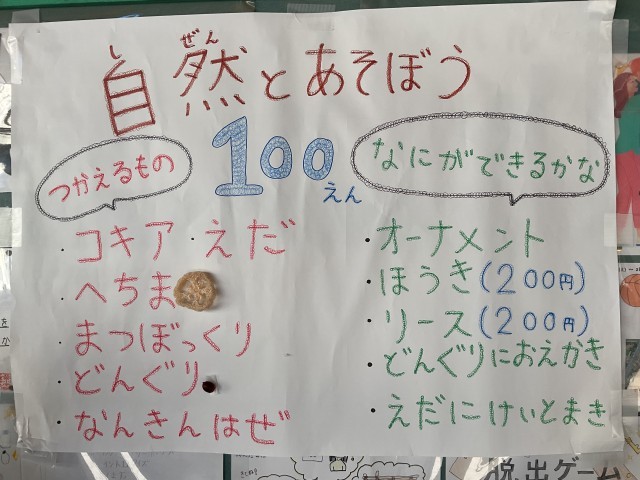 しぜん
自然とあそぼう
100えん
つかえるもの
・コキア ・えだ
・へちま
・まつぼっくり
・どんぐり
・なんきんはぜ
なにができるかな
・オーナメント
・ほうき(200円)
・リース(200円)
・どんぐりにおえかき
・えだにけいとまき
脱出ゲーム